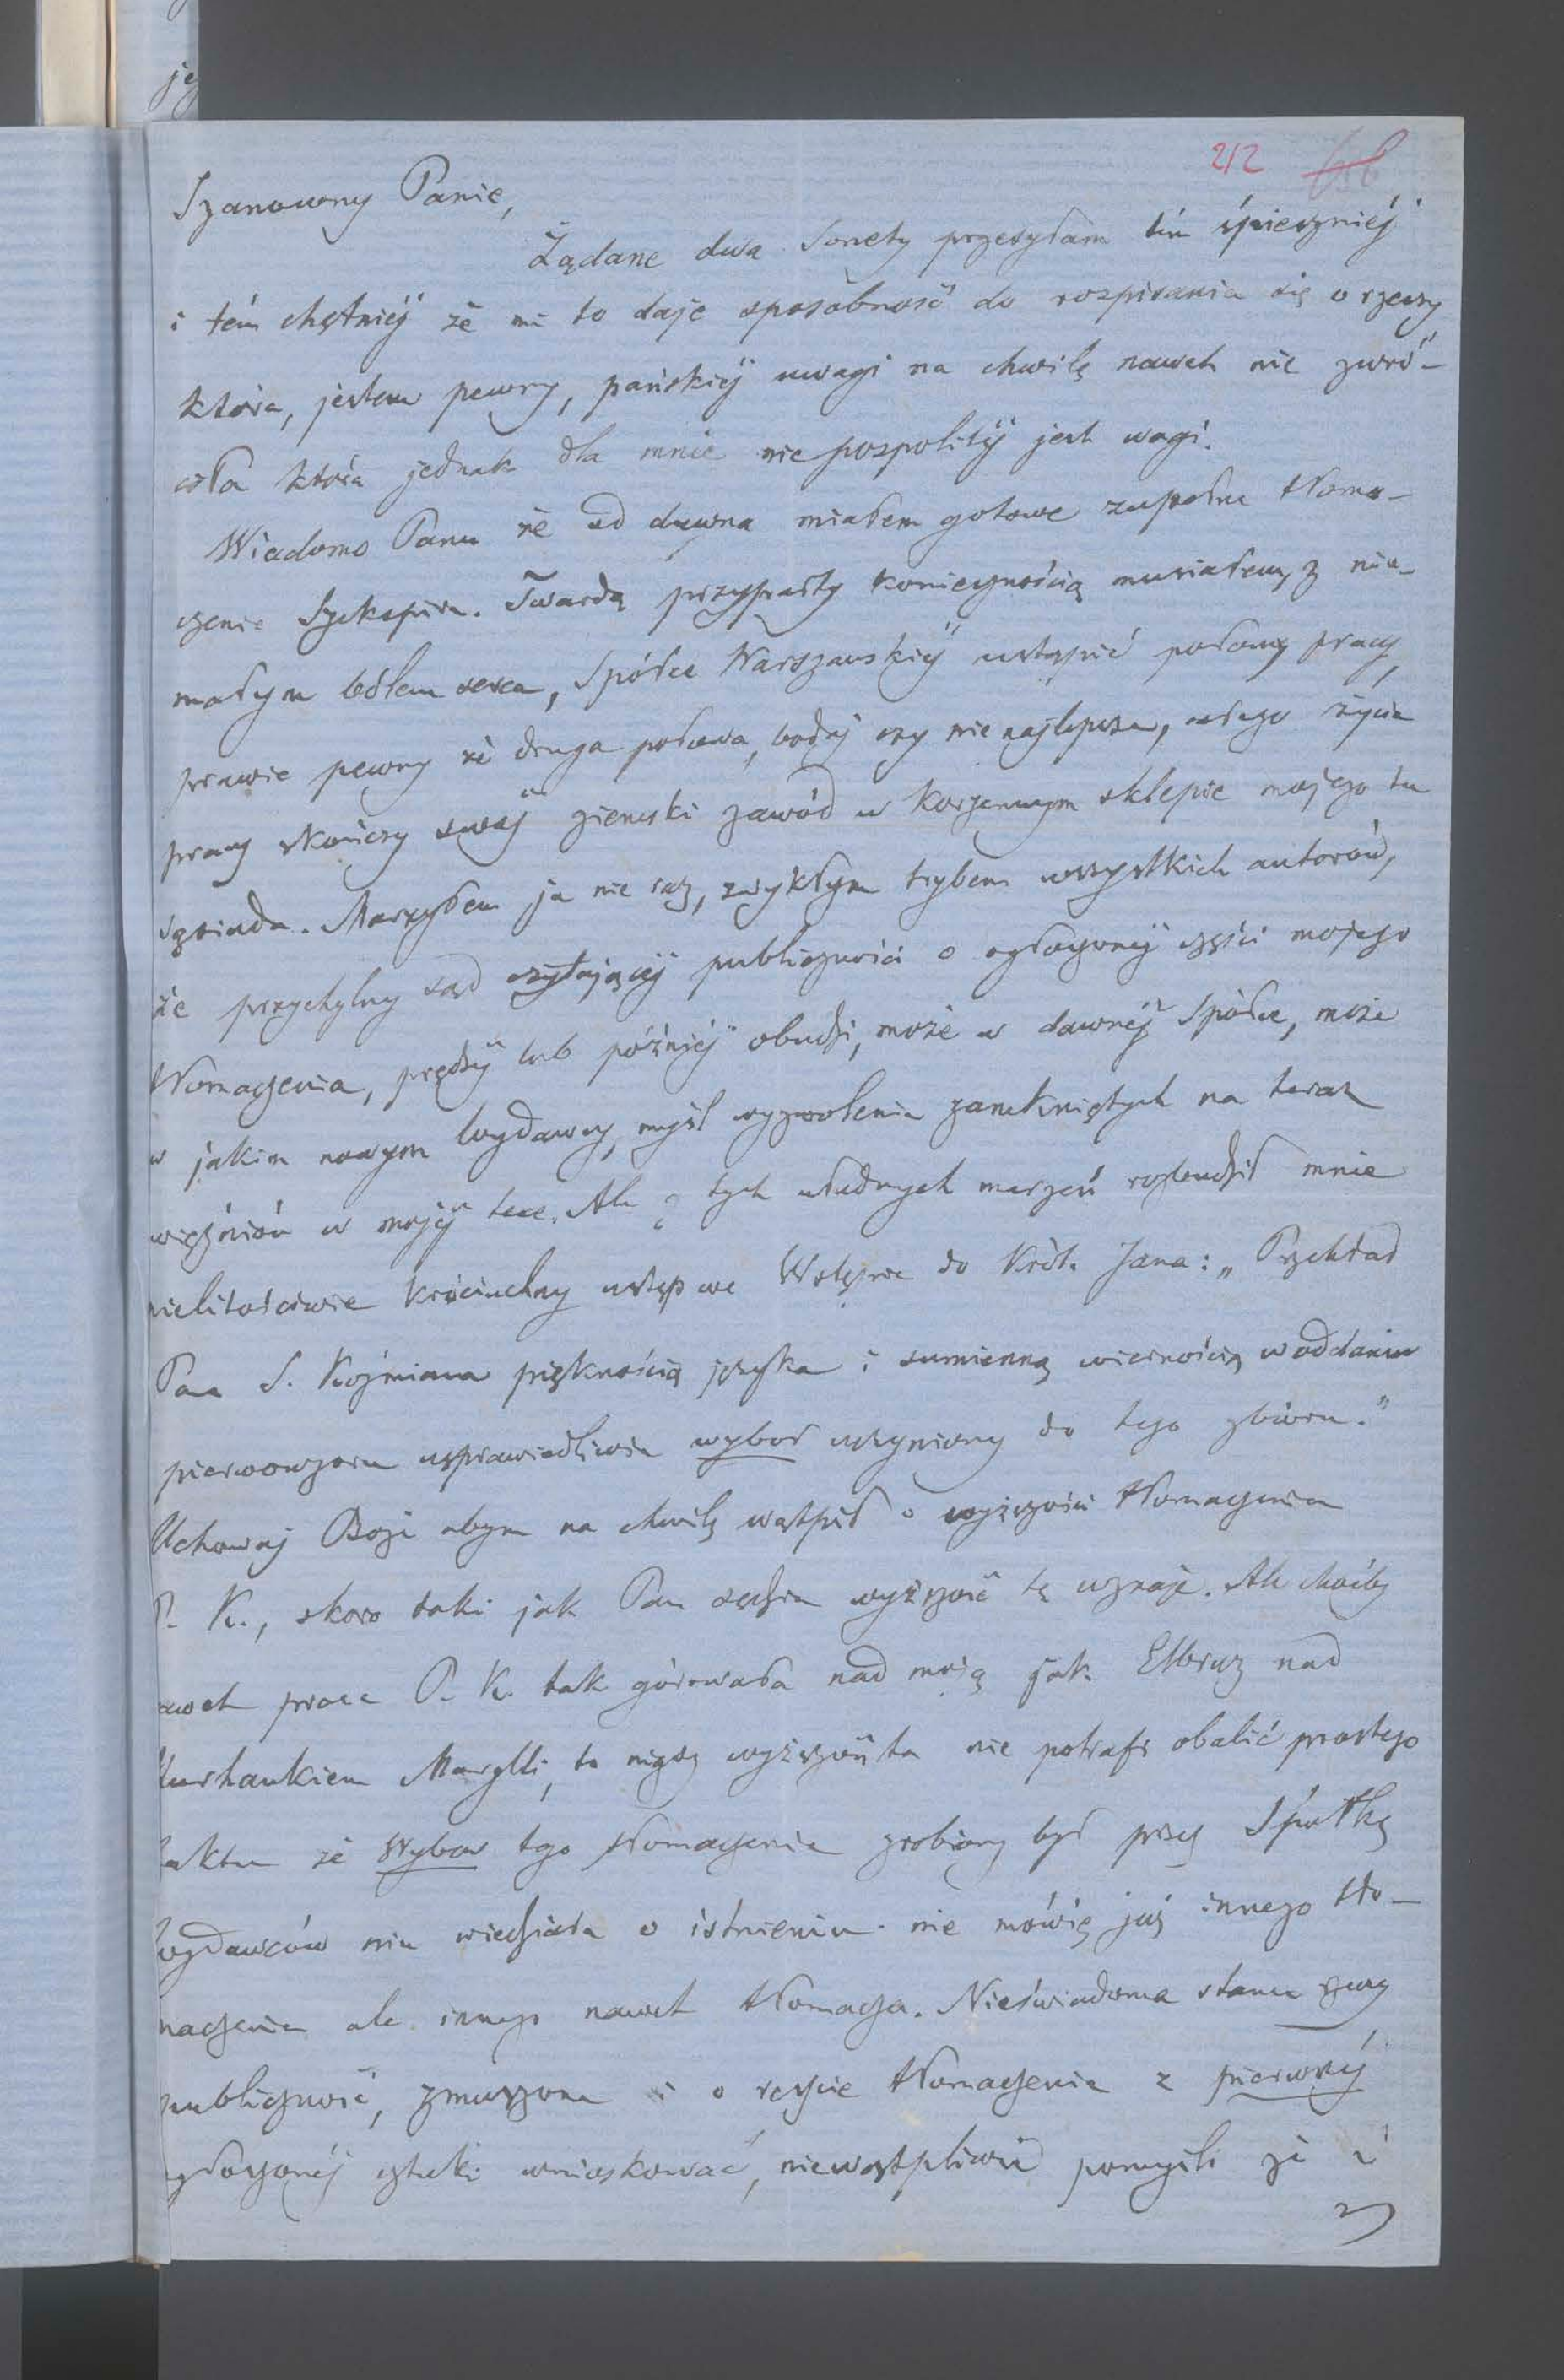 212
Szanowny Panie,
Żądane dwa Sonety przesyłam tém śpieszniéj
i tém chętniéj że mi to daje sposobność do rozpisania się o rzeczy
która, jestem pewny, pańskiéj uwagi na chwilę nawet nie zwró-
ciła która jednak dla mnie niepospolitéj jest wagi.
Wiadomo Panu że od dawna miałem gotowe zupełne tłoma-
czenie Szekspira. Twardą przyparty koniecznością musiałem, z nie-
małym bólem serca, Spółce Warszawskiéj ustąpić połowy pracy,
prawie pewny że druga połowa, bodaj czy nie najlepsza, całego życia
pracy skończy swój ziemski zawód w korzennym sklepie mojego tu
sąsiada. Marzyłem ja nie raz, zwykłym trybem wszystkich autorów,
że przychylny sąd czytającéj publiczności o ogłoszonéj części mojego
tłomaczenia, prędzéj lub późniéj obudzi, może w dawnéj Spółce, może
w jakim nowym wydawcy, myśl wyzwolenia zamkniętych na teraz
więźniów w mojéj tece. Ale z tych złudnych marzeń rozbudził mnie
nielitościwie króciuchny ustęp we Wstępie do Króla Jana: „Przekład
Pana S. Koźmiana pięknością języka i sumienną wiernością w oddaniu
pierwowzoru usprawiedliwia wybór uczyniony do tego zbioru."
Uchowaj Boże abym na chwilę wątpił o wyższości tłomaczenia
P. K., skoro taki jak Pan sędzia wyższość tę uznaje. Ale choćby
nawet praca P. K. tak górowała nad moją jak Elbruz nad
kurhankiem Marylli, to nigdy wyższość ta nie potrafi obalić prostego
faktu że Wybór tego tłomaczenia zrobiony był przez Spółkę
wydawców nim wiedziała o istnieniu nie mówię już innego tło-
maczenia ale innego nawet tłomacza. Nieświadoma stanu rzeczy
publiczność, zmuszona i o reszcie tłomaczenia z pierwszéj
ogłoszonéj sztuki wnioskować, niewątpliwie pomyśli że i